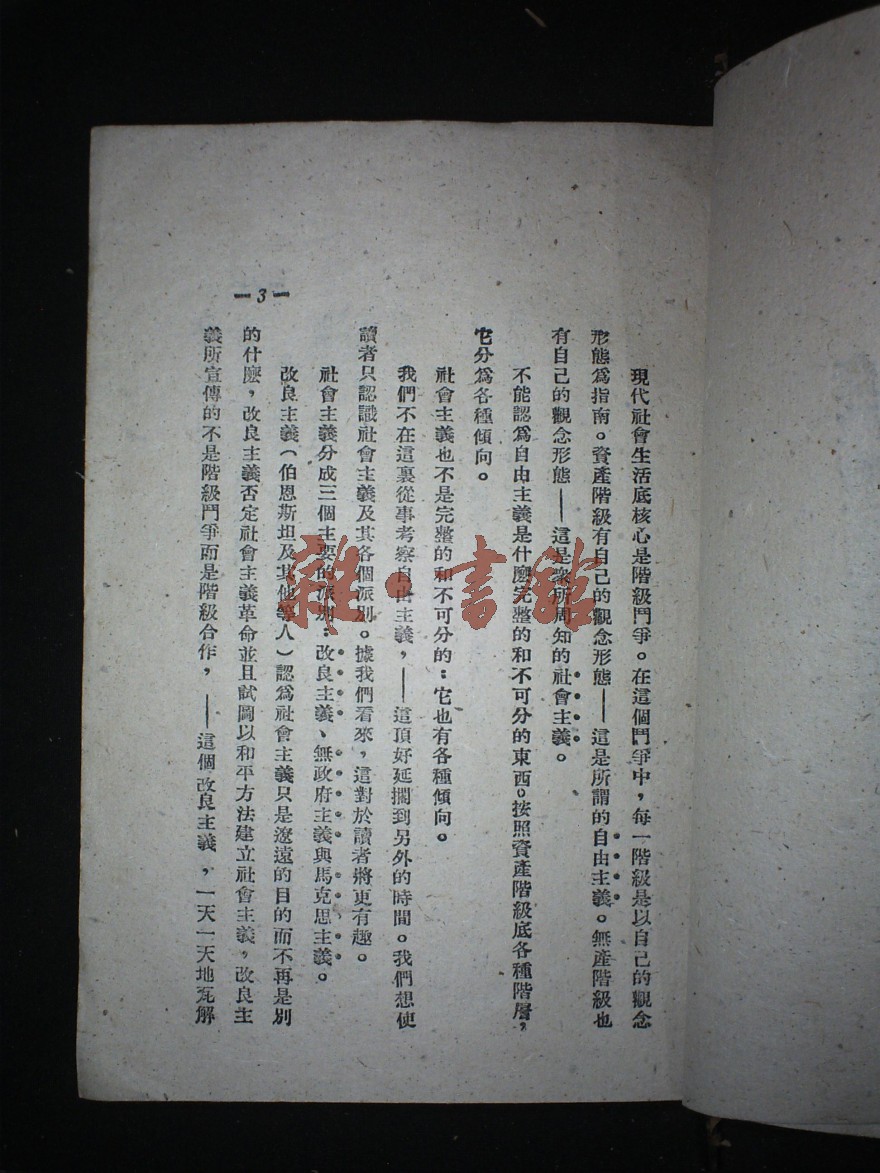 現代社會生活底核心是階級鬥爭。在這個鬥爭中，每一階級是以自己的觀念
形態爲指南。資產階級有自己的觀念形態——這是所謂的自由主義。無產階級也
有自己的觀念形態——這是衆所周知的社會主義。
不能認爲自由主義是什麼完整的和不可分的東西。按照資產階級底各種階層，
它分爲各種傾向。
社會主義也不是完整的和不可分的：它也有各種傾向。
我們不在這裏從事考察自由主義，——這頂好延擱到另外的時間。我們想使
讀者只認識社會主義及其各個派別。據我們看來，這對於讀者將更有趣。
社會主義分成三個主要的派別：改良主義、無政府主義與馬克思主義。
改良主義（伯恩斯坦及其他等人）認爲社會主義只是遼遠的目的而不再是別
的什麼，改良主義否定社會主義革命並且試圖以和平方法建立社會主義，改良主
義所宣傳的不是階級鬥爭而是階級合作，——這個改良主義，一天一天地瓦解
—3—
雜·書館